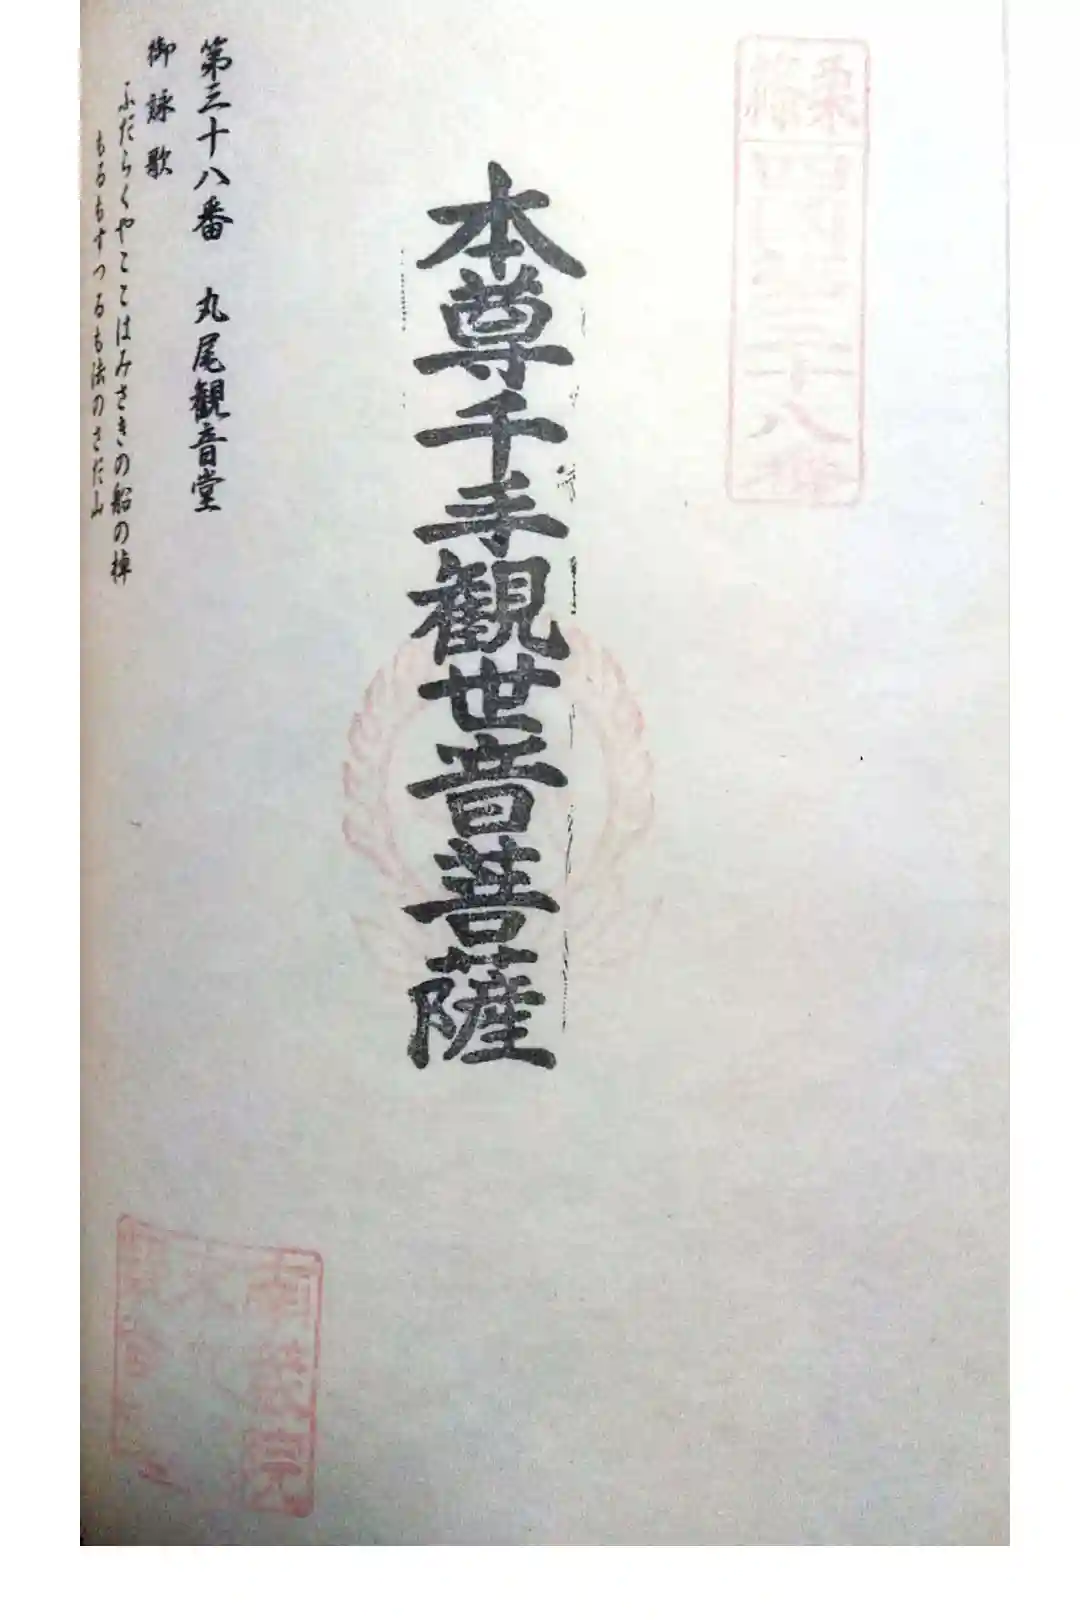 篠栗
四国第三十八番
本尊千手観世音菩薩
第三十八番 丸尾観音堂
御詠歌
ふだらくやここはみさきの船の棹
もるもすつるも法のさだ山